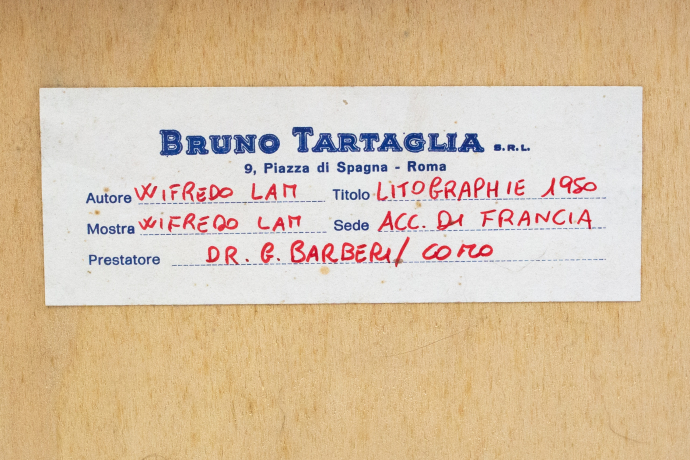 BRUNO TARTAGLIA S.R.L.
9, Piazza di Spagna - Roma
Autore WIFREDO LAM Titolo LITOGRAPHIE 1950
Mostra WIFREDO LAM Sede ACC. DI FRANCIA
Prestatore DR. G. BARBERI/ COMO